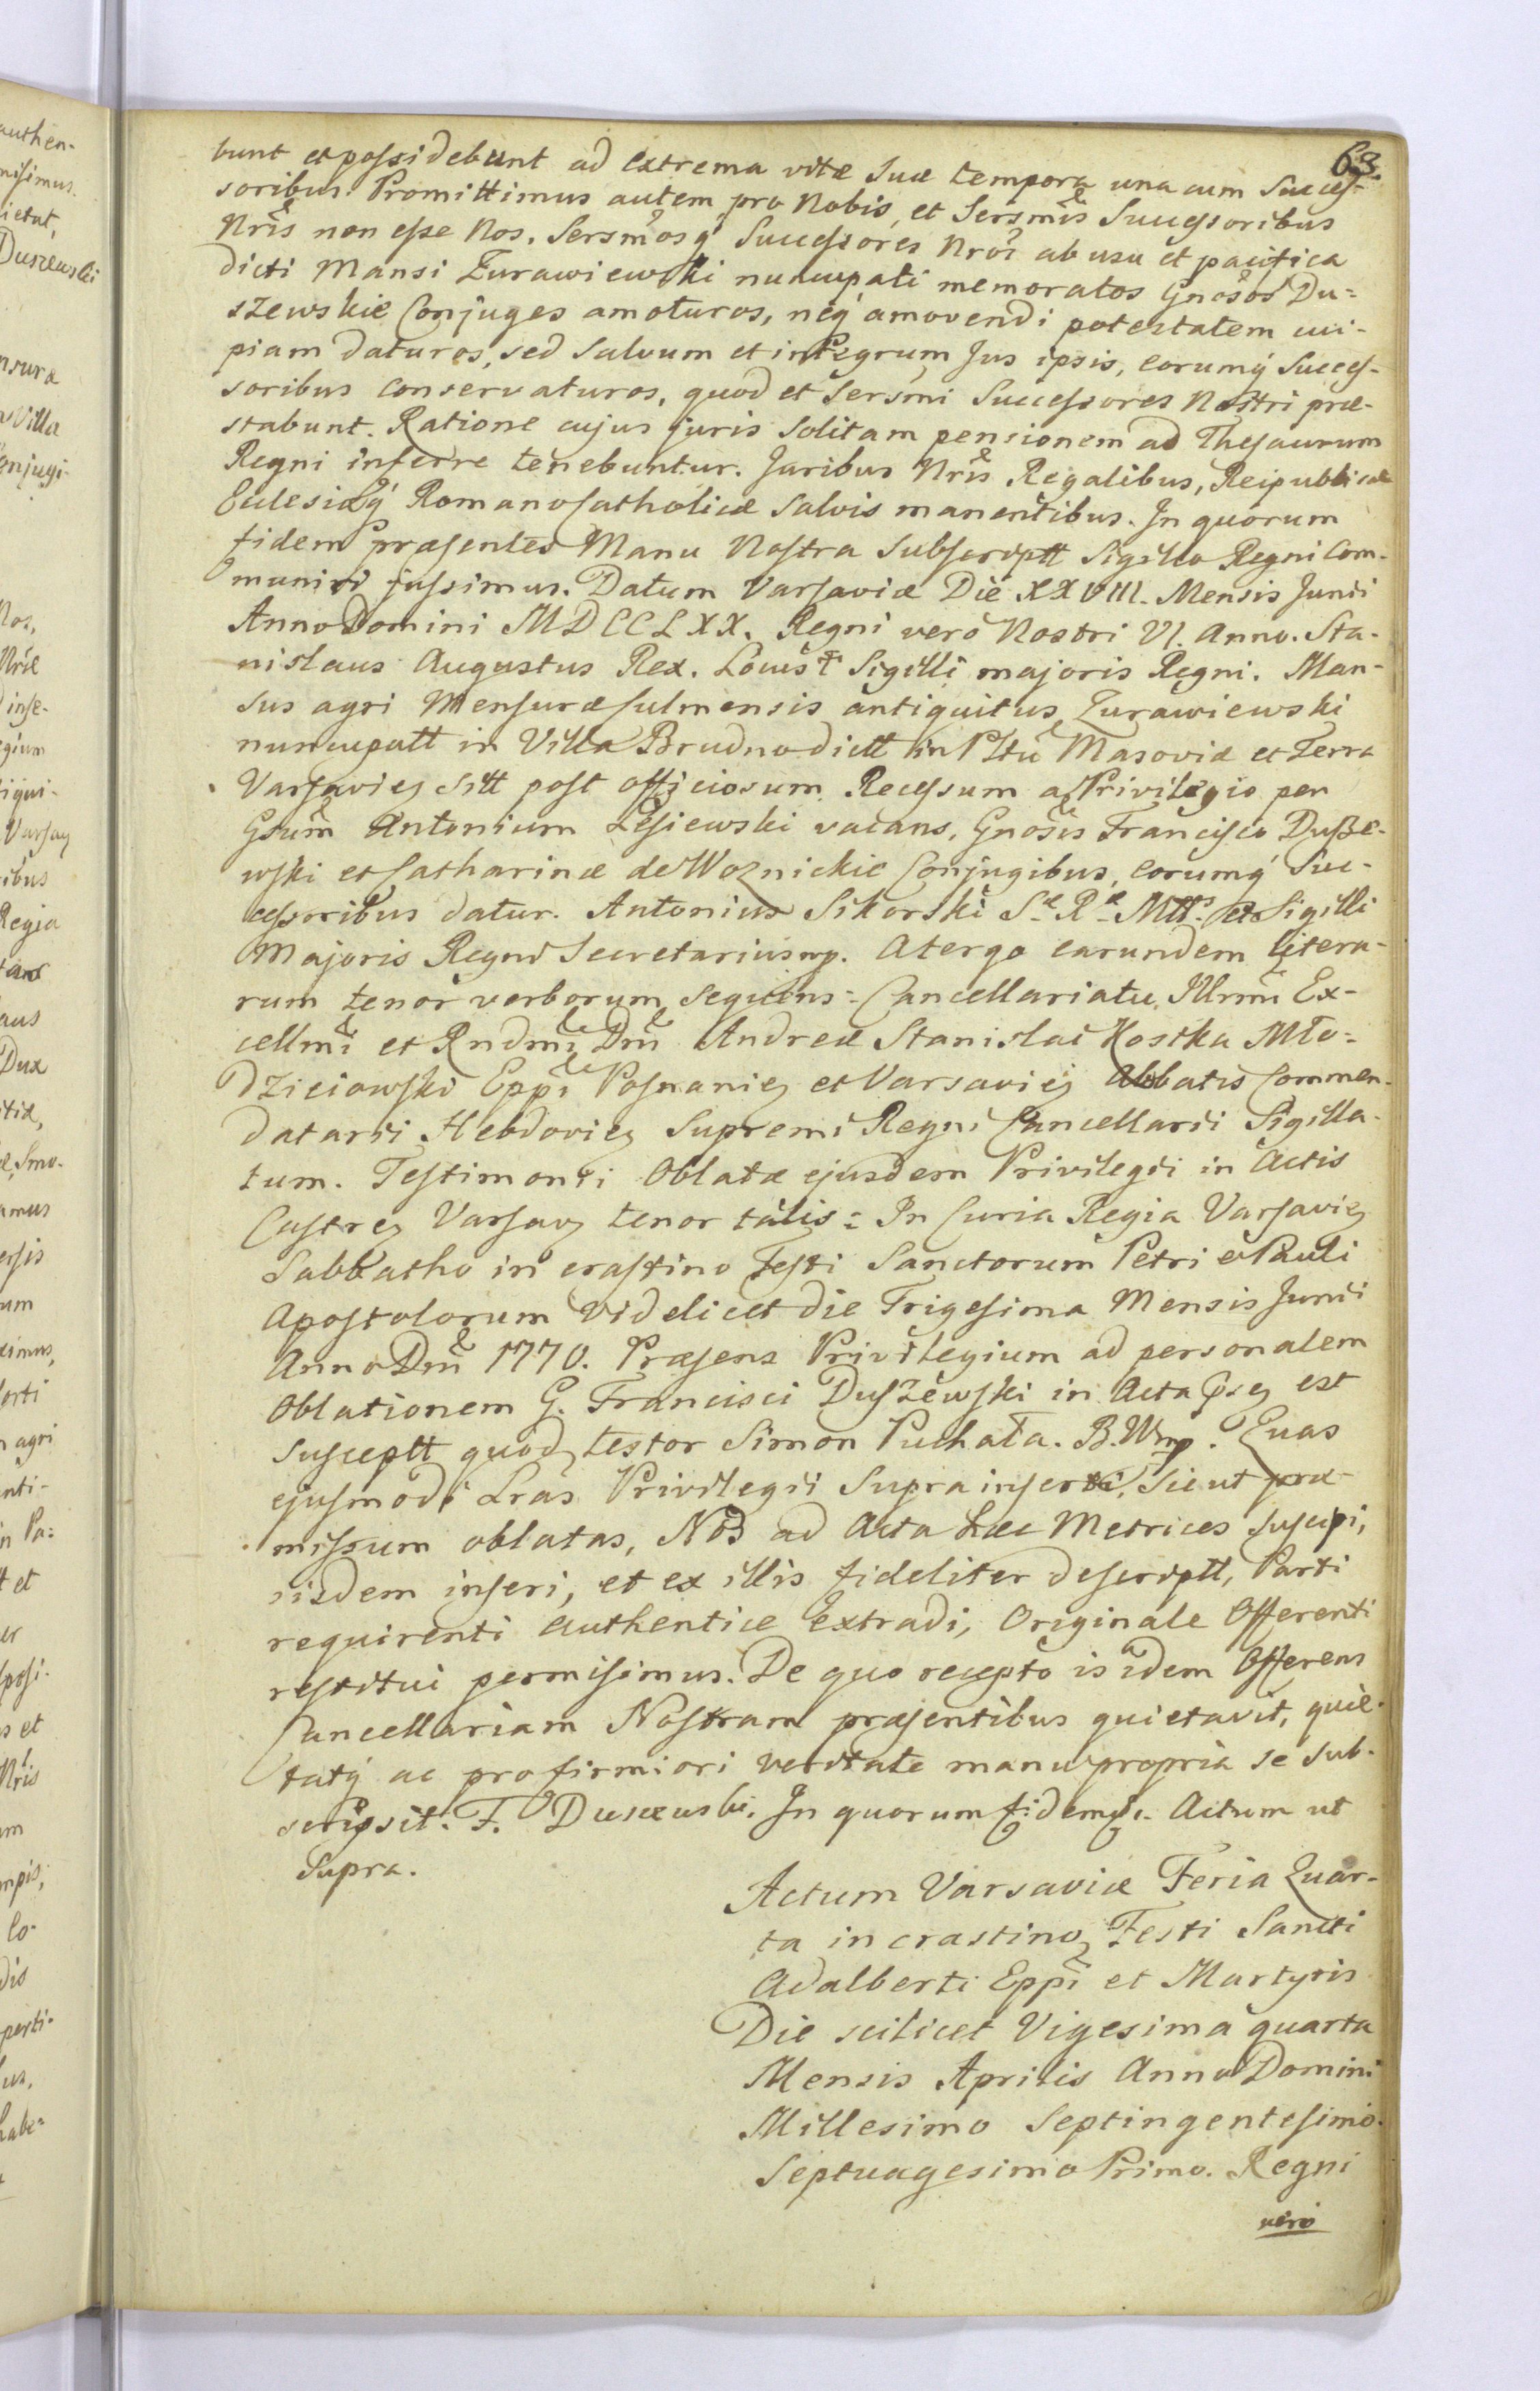 63.
bunt et possidebunt ad extrema vitæ suæ tempora una cum Succes-
soribus. Promittimus autem pro Nobis, et Sersmis Successoribus
Nris non esse Nos, Sersmosq́ Successores Nros ab usu et pacifica
dicti Mansi Żurawiewski nuncupati memoratos Gnosos Du=
szewskie Conjuges amoturos, neq́ amovendi potestatem cui-
piam daturos, sed salvum et integrum Jus ipsis, eorumq́ Succes-
soribus conservaturos, quod et Sersmi Successores Nostri præ-
stabunt. Ratione cujus juris solitam pensionem ad Thesaurum
Regni inferre tenebuntur. Juribus Nris Regalibus, Reipublicæ
Eclesiæq́ Romano Catholicæ salvis manentibus. In quorum
fidem præsentes Manu Nostra subscriptt Sigillo Regni com-
muniri jussimus. Datum Varsaviæ Die XXVIII. Mensis Junii
Anno Domini MDCCLXX. Regni vero Nostri VI. Anno. Sta-
nislaus Augustus Rex. Locus ✝ Sigilli majoris Regni. Man-
sus agri Mensuræ Culmensis antiquitus Żurawiewski
nuncupatt in Villa Brudno dictt in Pltu Masoviæ et Terra
Varsavieȝ sitt post officiosum Recessum a Privilegio per
Gsum Antonium Lesiewski vacans, Gnosis Francisco Dusze-
wski et Catharinæ de Woznickie Conjugibus, eorumq́ Suc-
cessoribus datur. Antonius Sikorski Sæ Ræ Mttis et Sigilli
Majoris Regni Secretarius mp. A tergo earundem litera-
rum tenor verborum sequens: Cancellariatu Illrmi Ex-
cellmi et Rndmi Dni Andreæ Stanislai Kostka Mło=
dzieiowski Eppi Posnanieȝ et Varsavieȝ Abbatis Commen-
datarii Hebdovieȝ Supremi Regni Cancellarii Sigilla-
tum. Testimonii Oblatæ ejusdem Privilegii in Actis
Castreȝ Varsavȝ tenor talis: In Curia Regia Varsavieȝ
Sabbatho in crastino Festi Sanctorum Petri et Pauli
Apostolorum videlicet die Trigesima Mensis Junii
Anno Dni 1770. Præsens Privilegium ad personalem
Oblationem G. Francisci Duszewski in Acta Pseȝ est
susceptt quod testor Simon Puchała. B. W mp. Quas
ejusmodi Lras Privilegii supra inserti, sicut præ-
missum oblatas, Nos ad Acta hæc Metrices suscipi,
iisdem inseri, et ex illis fideliter descriptt, Parti
requirenti authentice extradi, Originale Offerenti
restitui permisimus. De quo recepto is idem Offerens
Cancellariam Nostram præsentibus quietavit, quie-
tatq́ ac pro firmiori veritate manu propria se sub-
scripsit. F. Duszewski. In quorum fidem ꝛc. Actum ut
Supra.
Actum Varsaviæ Feria Quar-
ta in crastino Festi Sancti
Adalberti Eppi et Martyris
Die scilicet Vigesima quarta
Mensis Aprilis Anno Domini
Millesimo Septingentesimo
Septuagesimo Primo. Regni
vero